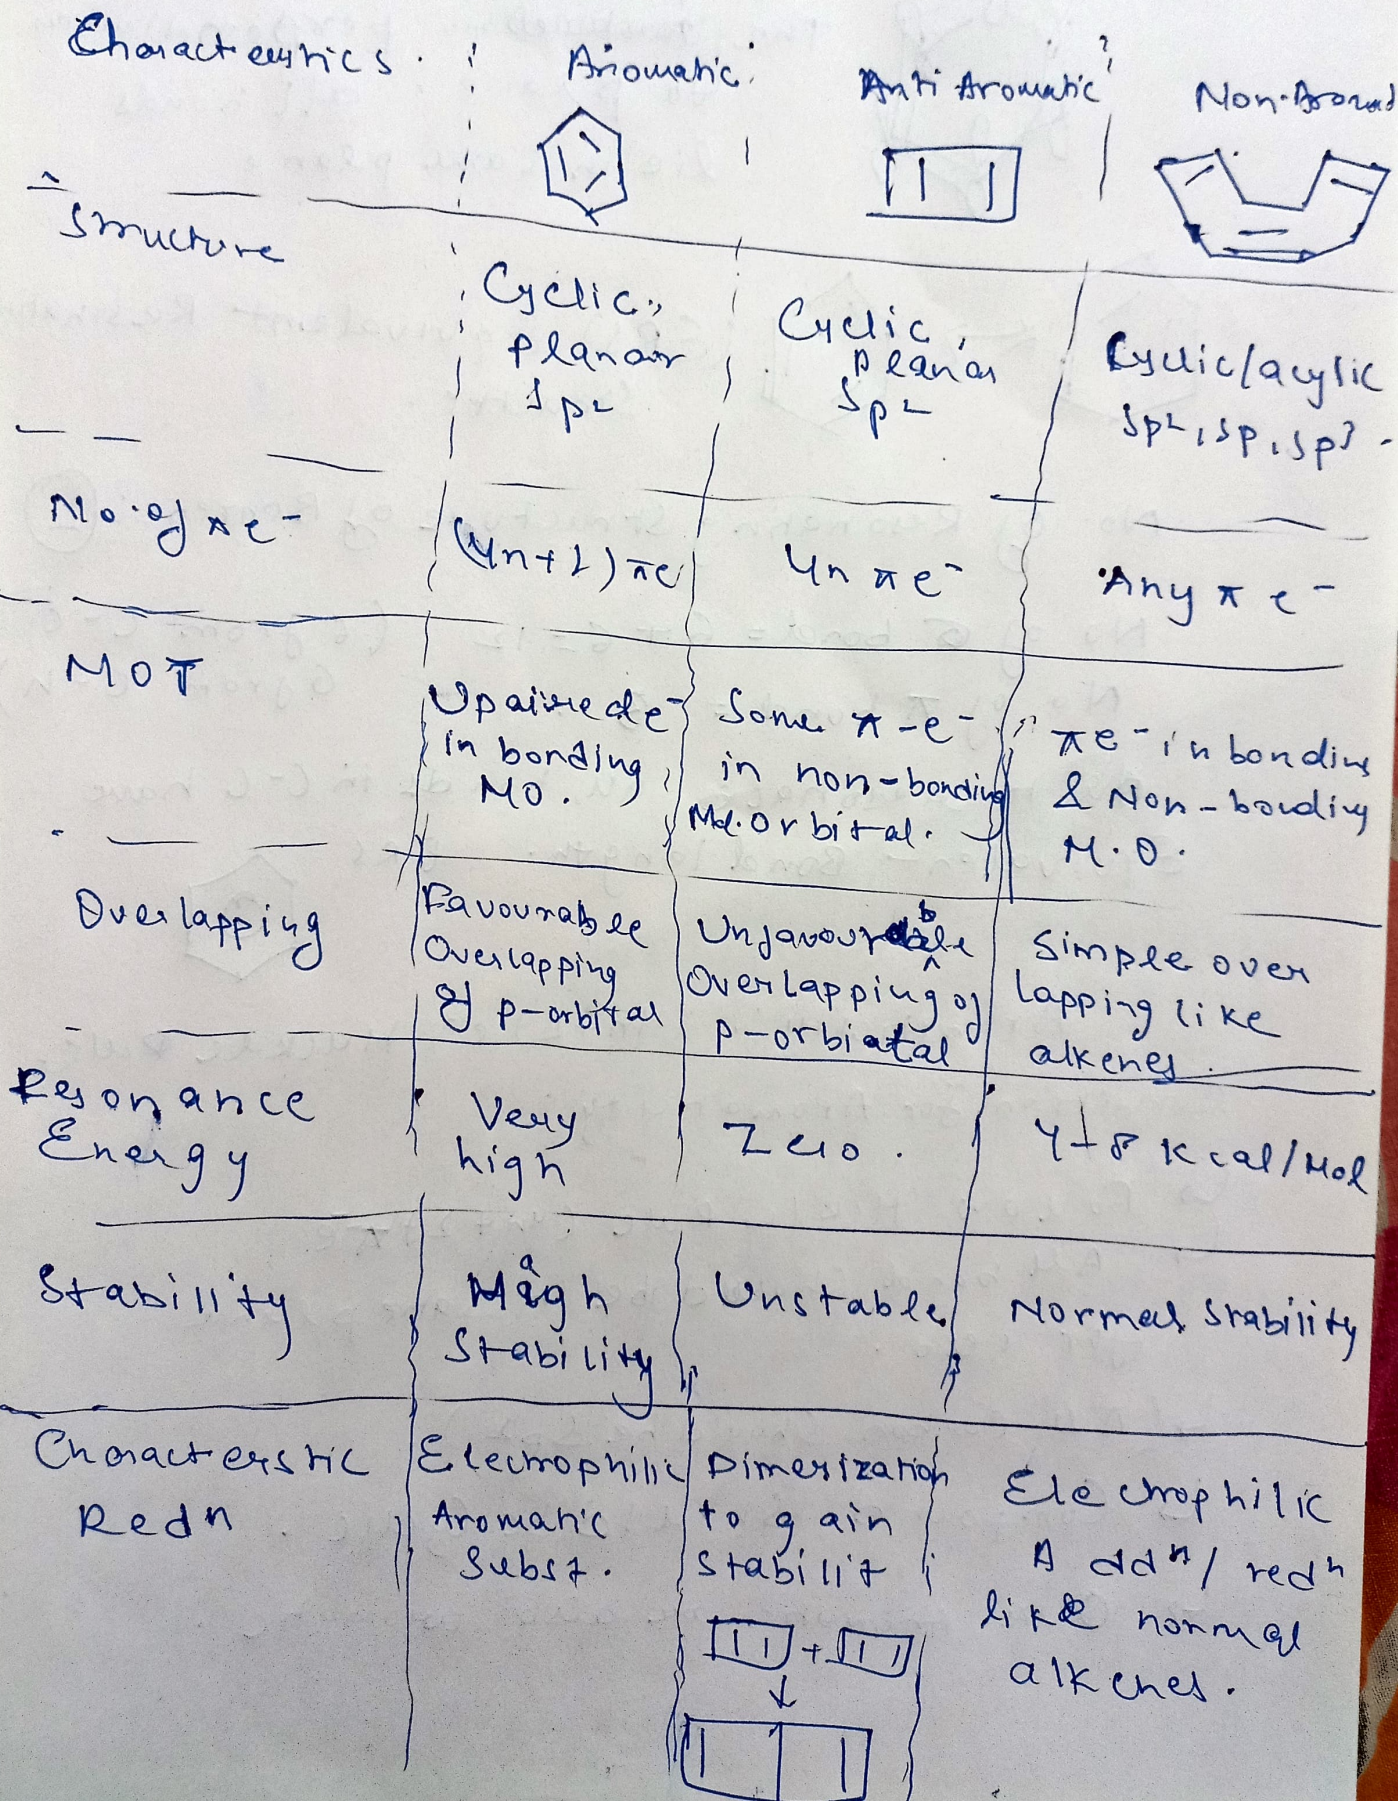 Characteristics
Aromatic
Anti Aromatic
Non-Aromat
Structure
Cyclic,
planar
sp2
Cyclic,
planar
sp2
Cyclic/acylic
sp2, sp, sp3.
No. of π e-
(4n+2) πe
4n π e-
Any π e-
MOT
Upairede-
in bonding
MO.
Some π-e-
in non-bonding
Mol. Orbital.
π e- in bonding
& Non-bonding
M.O.
Overlapping
Favourable
Overlapping
of p-orbital
Unfavourable
Overlapping of
p-orbiatal
Simple over
lapping like
alkenes.
Resonance
Energy
Very
high
Zero.
4-8 Kcal/Mol
Stability
High
Stability
Unstable
Normal Stability
Characterstic
Redn
Electrophilic
Aromatic
Subst.
Dimerization
to gain
stabilit
+
Electrophilic
Addn/ redn
like normal
alkenes.